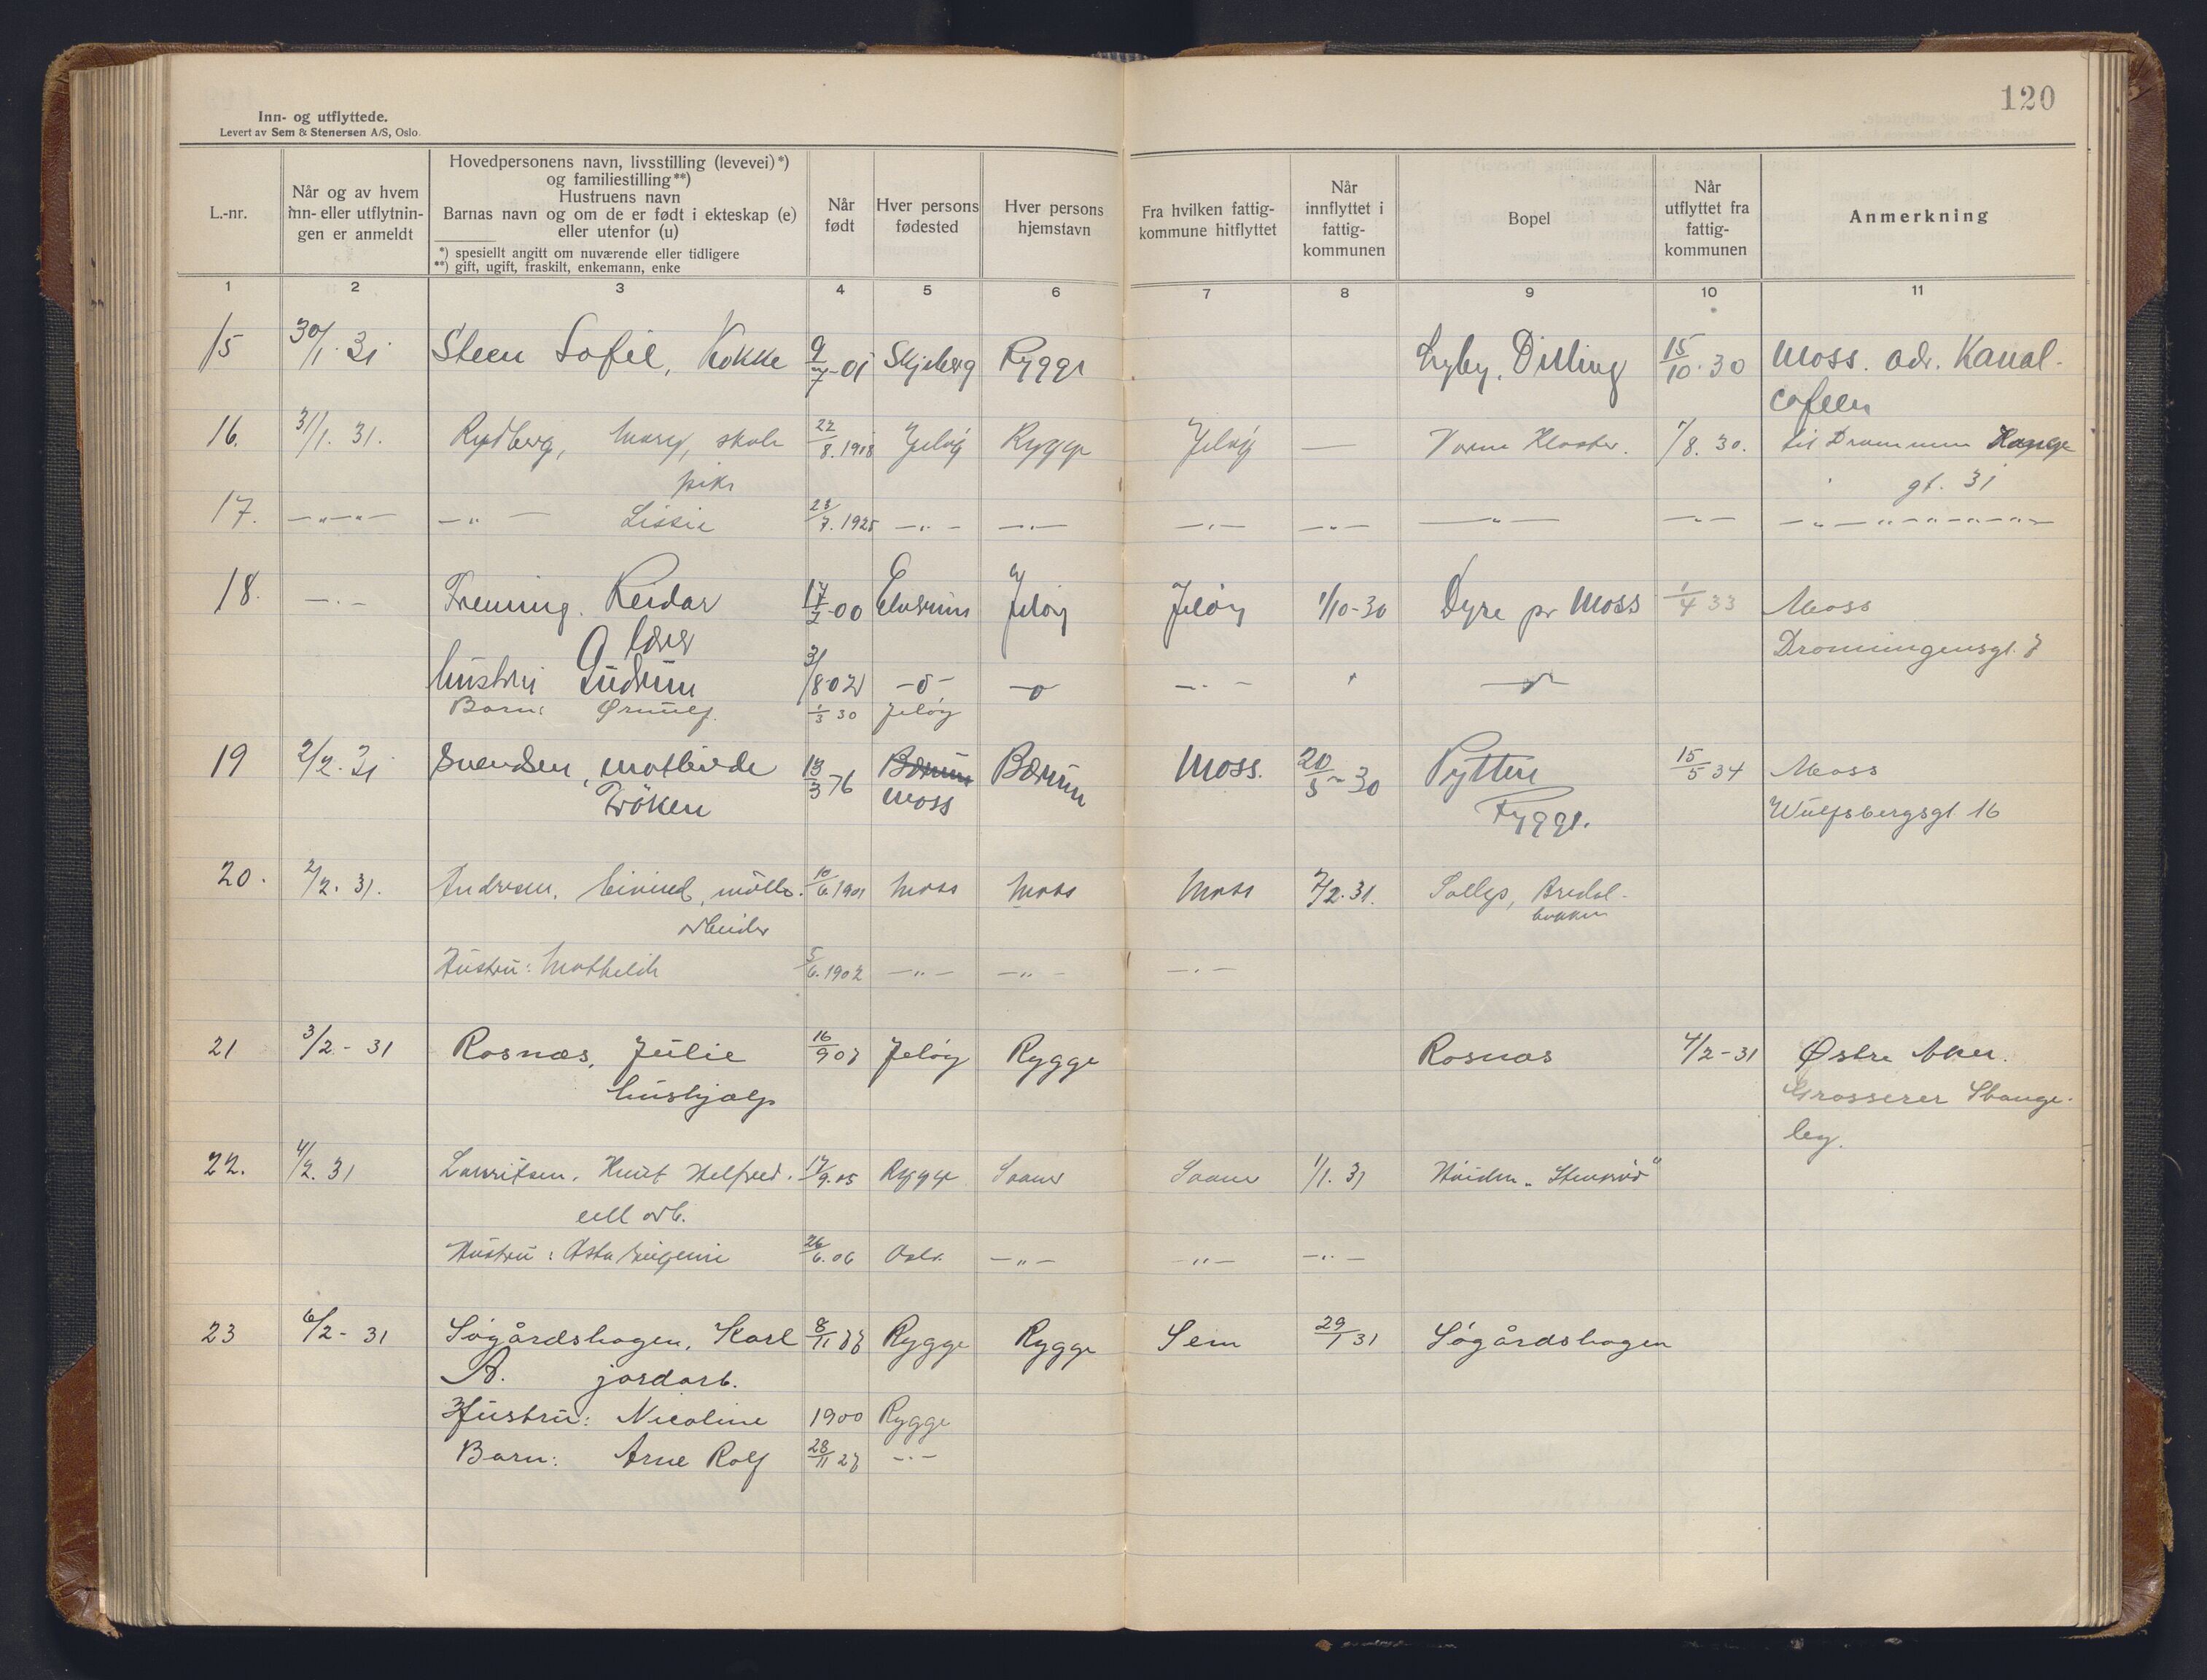 120
Inn- og utflyttede.
Levert av Sem & Stenersen A/S, Oslo.
L.-nr.
Når og av hvem inn- eller utflytningen er anmeldt
Hovedpersonens navn, livsstilling (levevei)*)
og familiestilling**)
Hustruens navn
Barnas navn og om de er født i ekteskap (e)
eller utenfor (u)
*) spesiellt angitt om nuværende eller tidligere
**) gift, ugift, fraskilt, enkemann, enke
Når født
Hver persons fødested
Hver persons hjemstavn
Fra hvilken fattigkommune hitflyttet
Når innflyttet i fattigkommunen
Bopel
Når utflyttet fra fattigkommunen
Anmerkning
1 2 3 4 5 6 7 8 9 10 11
15 30/1. 31 Steen Sofie, Kokke 9/7-01 Skjeberg Rygge Dilling 15/10.30 Moss. adr. Kanal-
cafeen
16. 31/1. 31. Rydberg, Mary, skole 22/8.1918 Jeløy Rygge Jeløy — Varna Kloster. 7/8. 30. til Drammen Hauge
pike gt. 31
17. —„—„— —„— Lissie 23/7.1925 —„— —„— —„— —„— —„— —„— —„—„—„—„—
18. —„— Frenning. Reidar 17/7-00 Elverum Jeløy Jeløy 1/10-30 Dyre pr Moss 1/4 33 Moss
lærer Dronningensgt. 7
hustru Gudrun 31/8-02 —o— —o— —„— —o—
Barn: Ørnulf. 1/3 30 Jeløy
19 2/2. 31 Svendsen, Mathilde 13/3 76 Bærum Bærum Moss. 20/5-30 Pytten 15/5 34 Moss
Frøken Moss Rygge. Wulfsbergsgt 16
20. 2/2. 31. Andresen, Eivind, mølle- 10/6 1901 Moss Moss Moss 2/2. 31. Solløs, Bredal-
arbeider bakken
Hustru: Mathilde 5/6. 1902 —„— —„— —„—
21 3/2 - 31 Rosnæs, Julie 16/9 07 Jeløy Rygge Rosnæs 4/2-31 Østre Aker.
hushjælp Grosserer Stange-
by.
22. 4/2. 31 Lauritsen, Knut Helfred. 17/9.05 Rygge Saaner Saaner 1/1. 31 Høiden „Stenrød"
cell arb.
Hustru: Asta Eugenie 26/6. 06 Oslo. —„— —„— —„—
23 6/2 - 31 Søgårdshagen, Karl 8/11 Rygge Rygge Sem 29/1 31 Søgårdshagen
A. jordarb.
Hustru: Nicoline 1900 Rygge
Barn: Arne Rolf 28/11 27 —„—